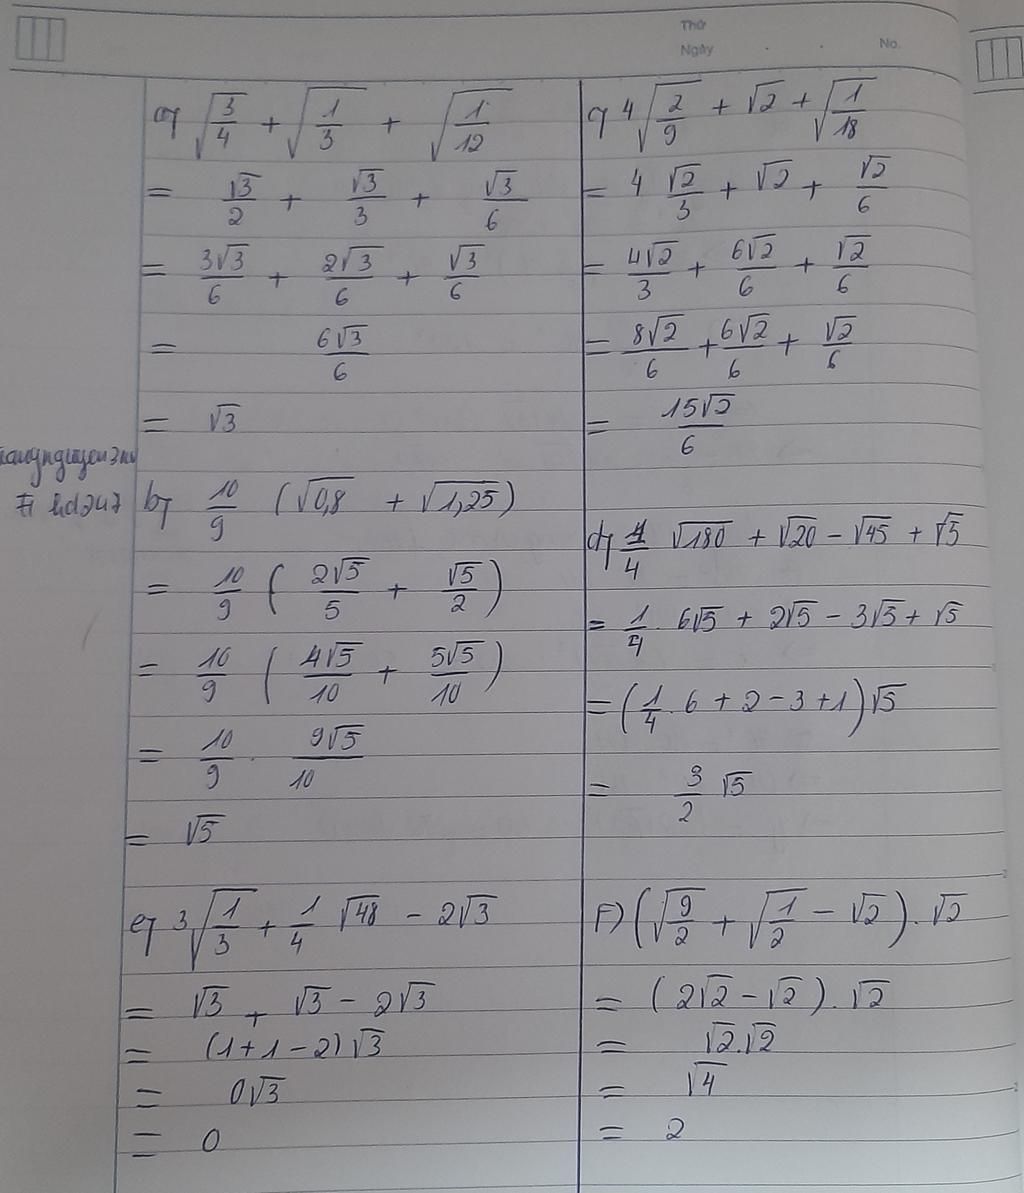 Thứ
Ngày . . No.
a) √(3/4) + √(1/3) + √(1/12)
= √3/2 + √3/3 + √3/6
= 3√3/6 + 2√3/6 + √3/6
= 6√3/6
= √3
b) 10/9 (√0,8 + √1,25)
= 10/9 (2√5/5 + √5/2)
= 10/9 (4√5/10 + 5√5/10)
= 10/9 . 9√5/10
= √5
e) 3√(1/3) + 1/4 √48 - 2√3
= √3 + √3 - 2√3
= (1+1-2)√3
= 0√3
= 0
c) 4√(2/9) + √2 + √(1/18)
= 4 √2/3 + √2 + √2/6
= 4√2/3 + 6√2/6 + √2/6
= 8√2/6 + 6√2/6 + √2/6
= 15√2/6
d) 1/4 √180 + √20 - √45 + √5
= 1/4 . 6√5 + 2√5 - 3√5 + √5
= (1/4 . 6 + 2 - 3 + 1)√5
= 3/2 √5
F) (√(9/2) + √(1/2) - √2) . √2
= (2√2 - √2) . √2
= √2.√2
= √4
= 2